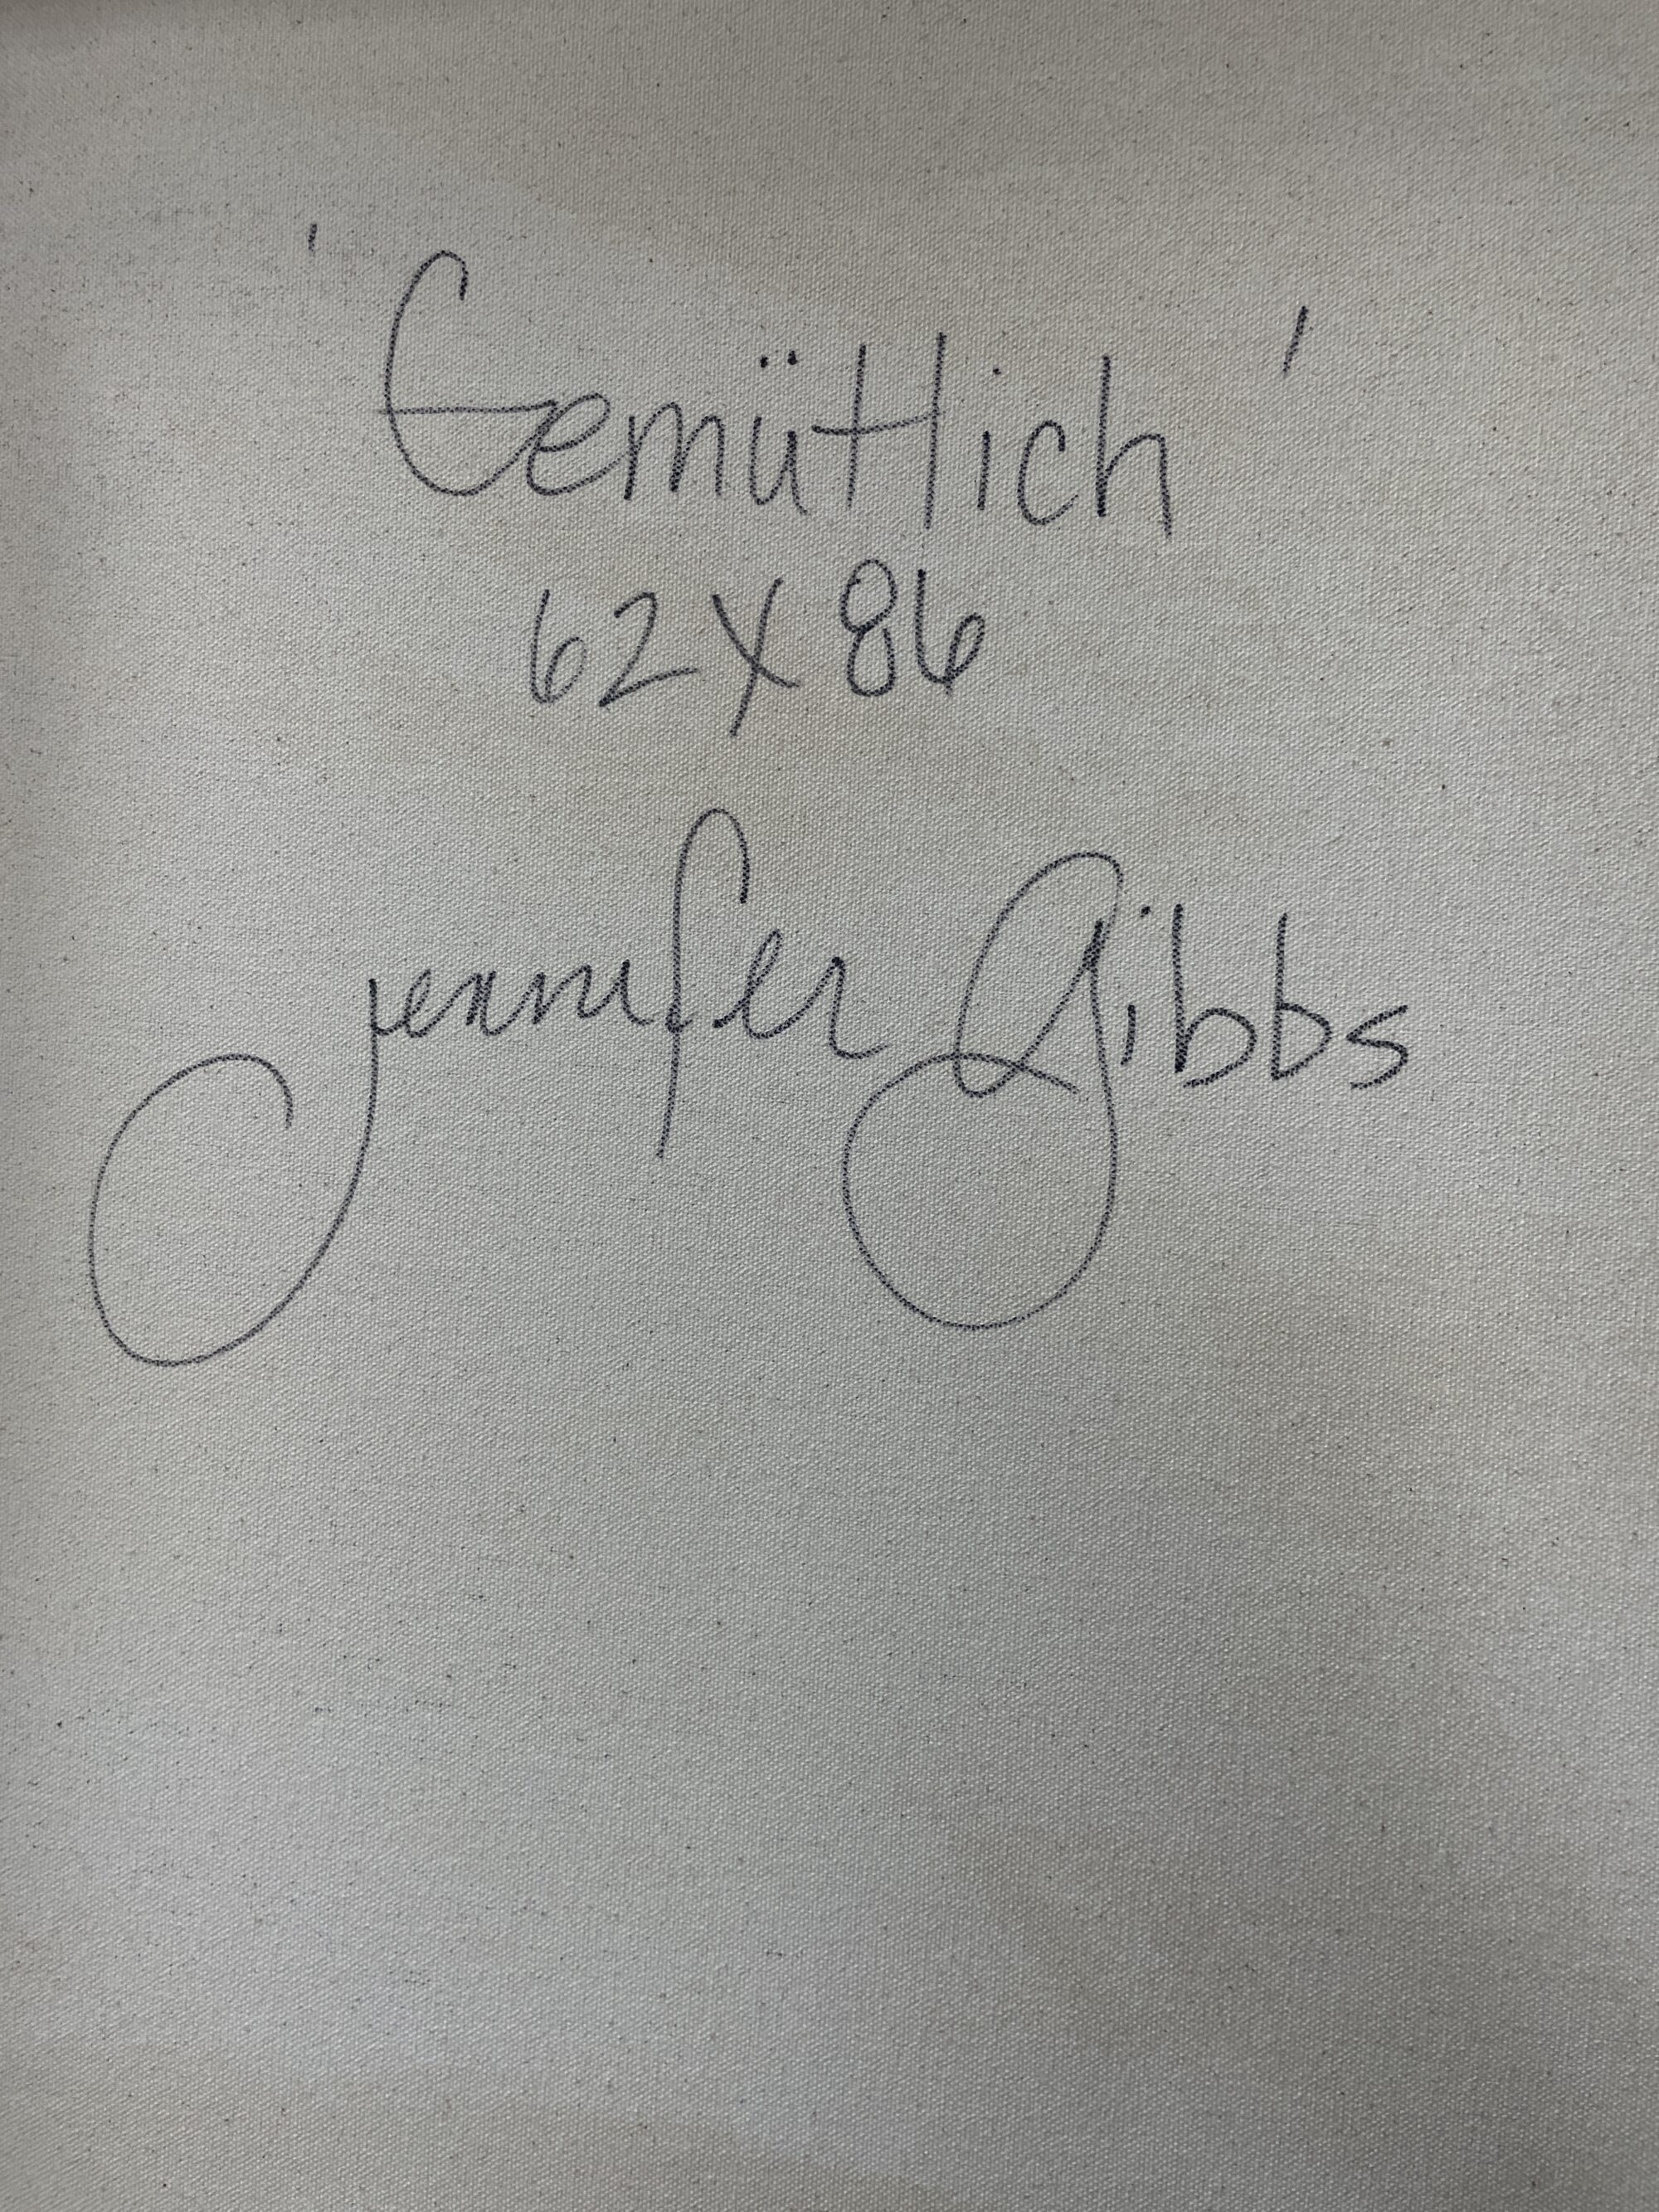 'Gemütlich'
62 X 86
Jennifer Gibbs